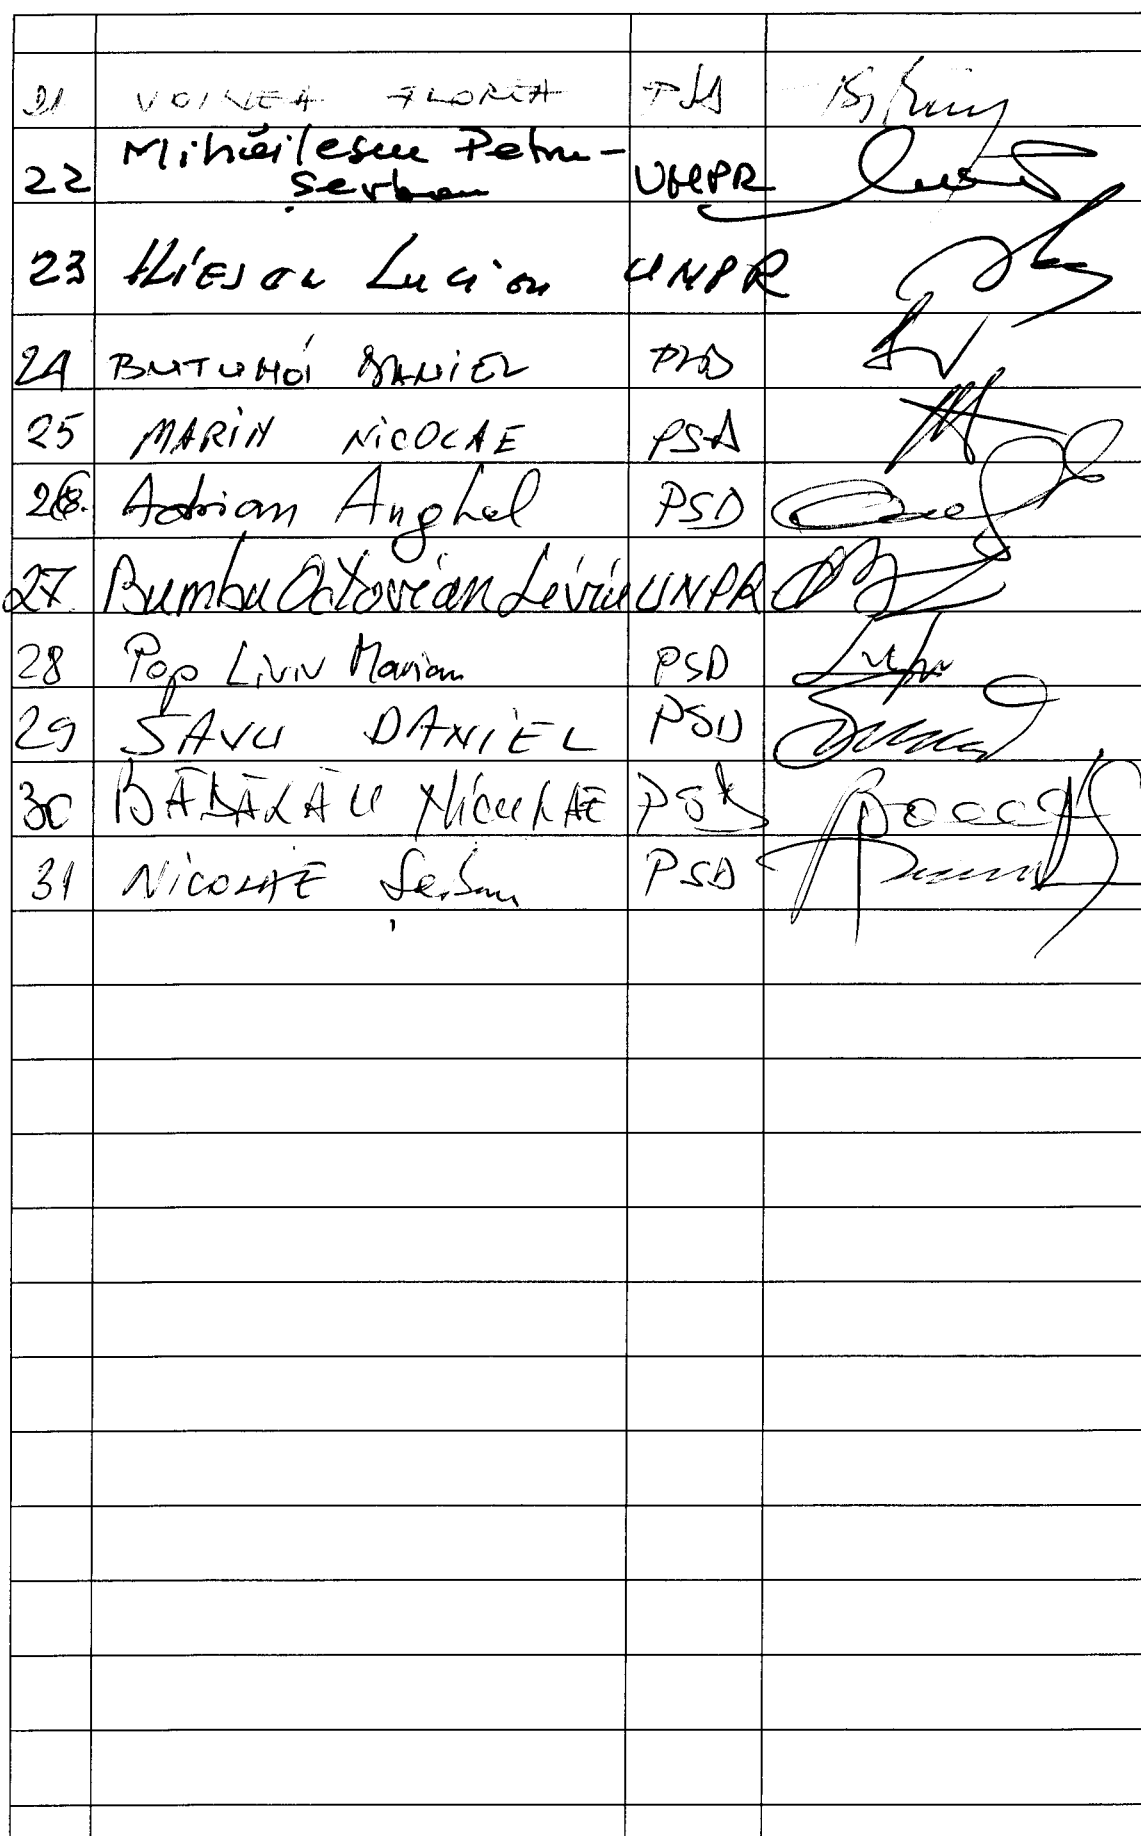 21 VOINEA FLOREA PSD
22 Mihăilescu Petru-
Șerban UNPR
23 Iliescu Lucian UNPR
24 BUTUNOI DANIEL PSD
25 MARIN NICOLAE PSD
26. Adrian Anghel PSD
27. Bumbu Octavian Liviu UNPR
28 Pop Liviu Marian PSD
29 SAVU DANIEL PSD
30 BĂDĂLĂU NICULAE PSD
31 NICOLAE Șerban PSD